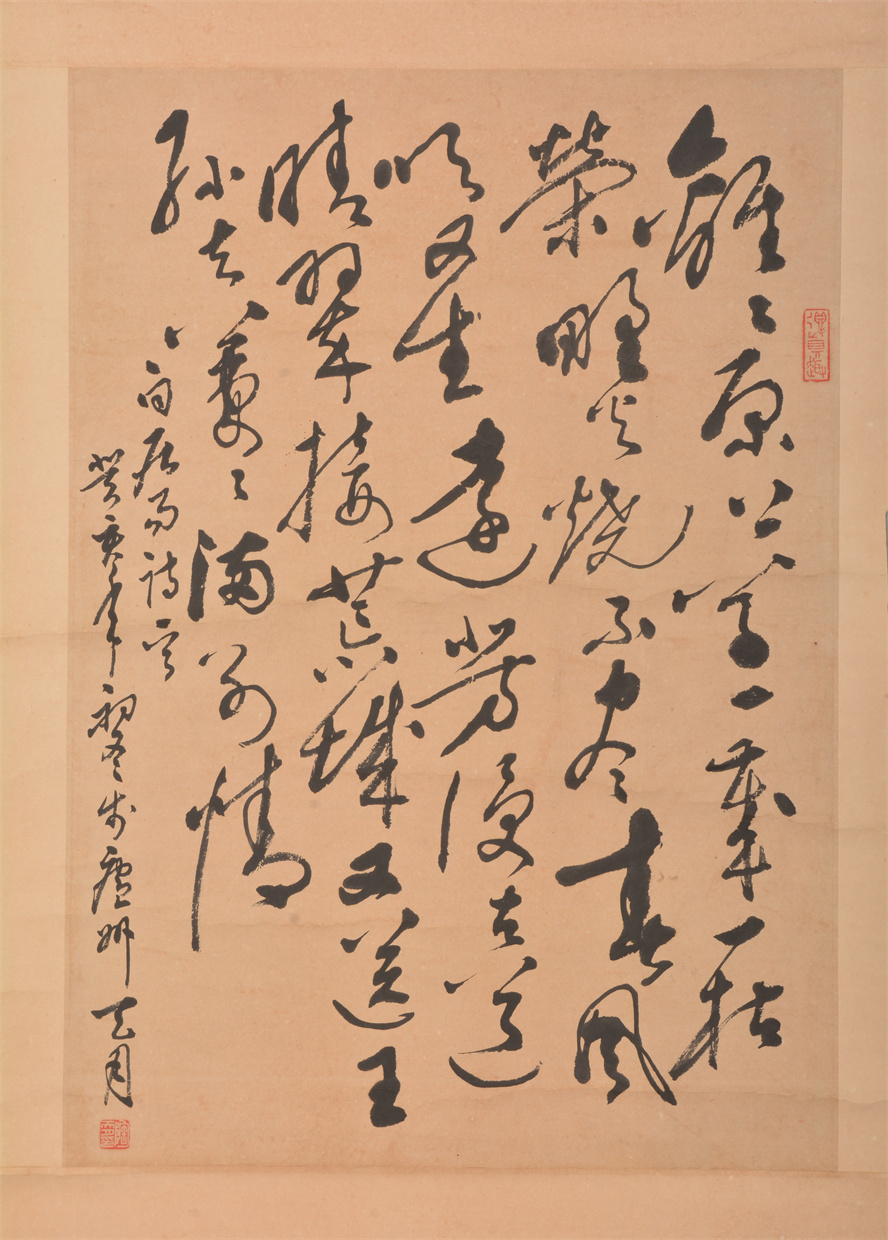 離〻原上草一歲一枯
榮野火燒不盡春風
吹又生遠芳侵古道
晴翠接荒城又送王
孫去萋〻滿別情
白居易詩
癸亥年初冬於廬州